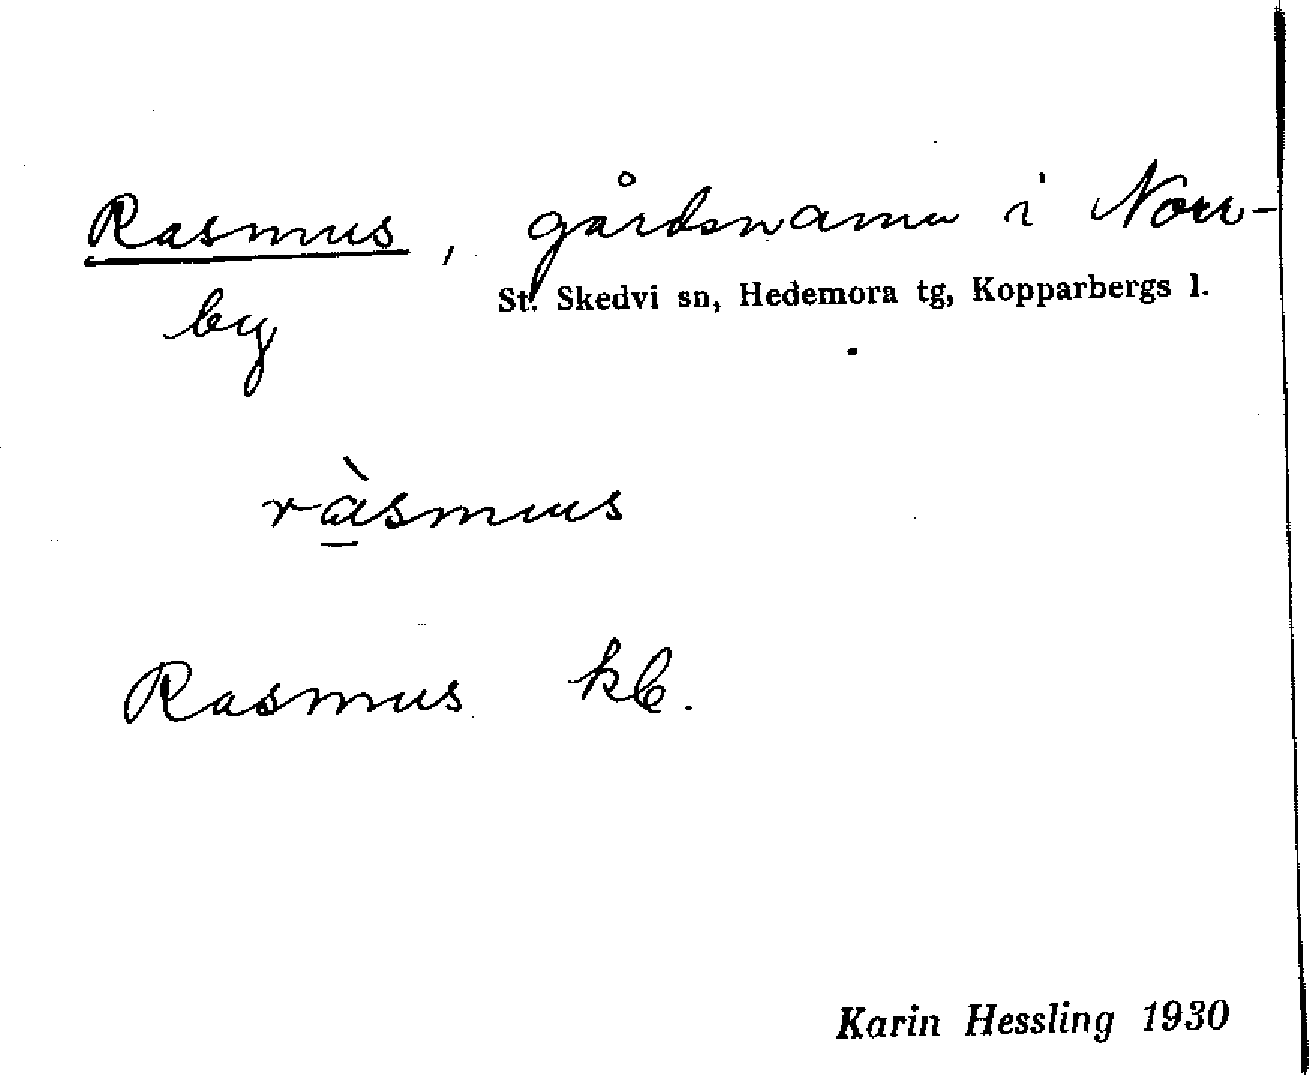 Rasmus, gårdsnamn i Norr-
by
St. Skedvi sn, Hedemora tg, Kopparbergs l.
ràsmus
Rasmus kb.
Karin Hessling 1930